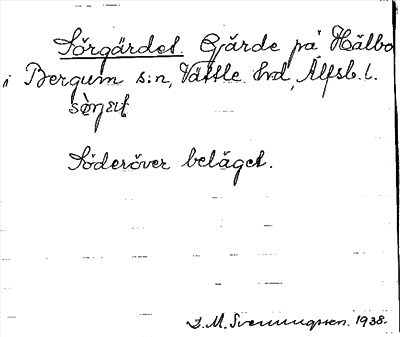 Sörgärdet. Gärde på Hälbo
i Bergum s:n, Vättle hd, Älfsb. l.
Söderöver beläget.
D. M. Svenungsson. 1938.